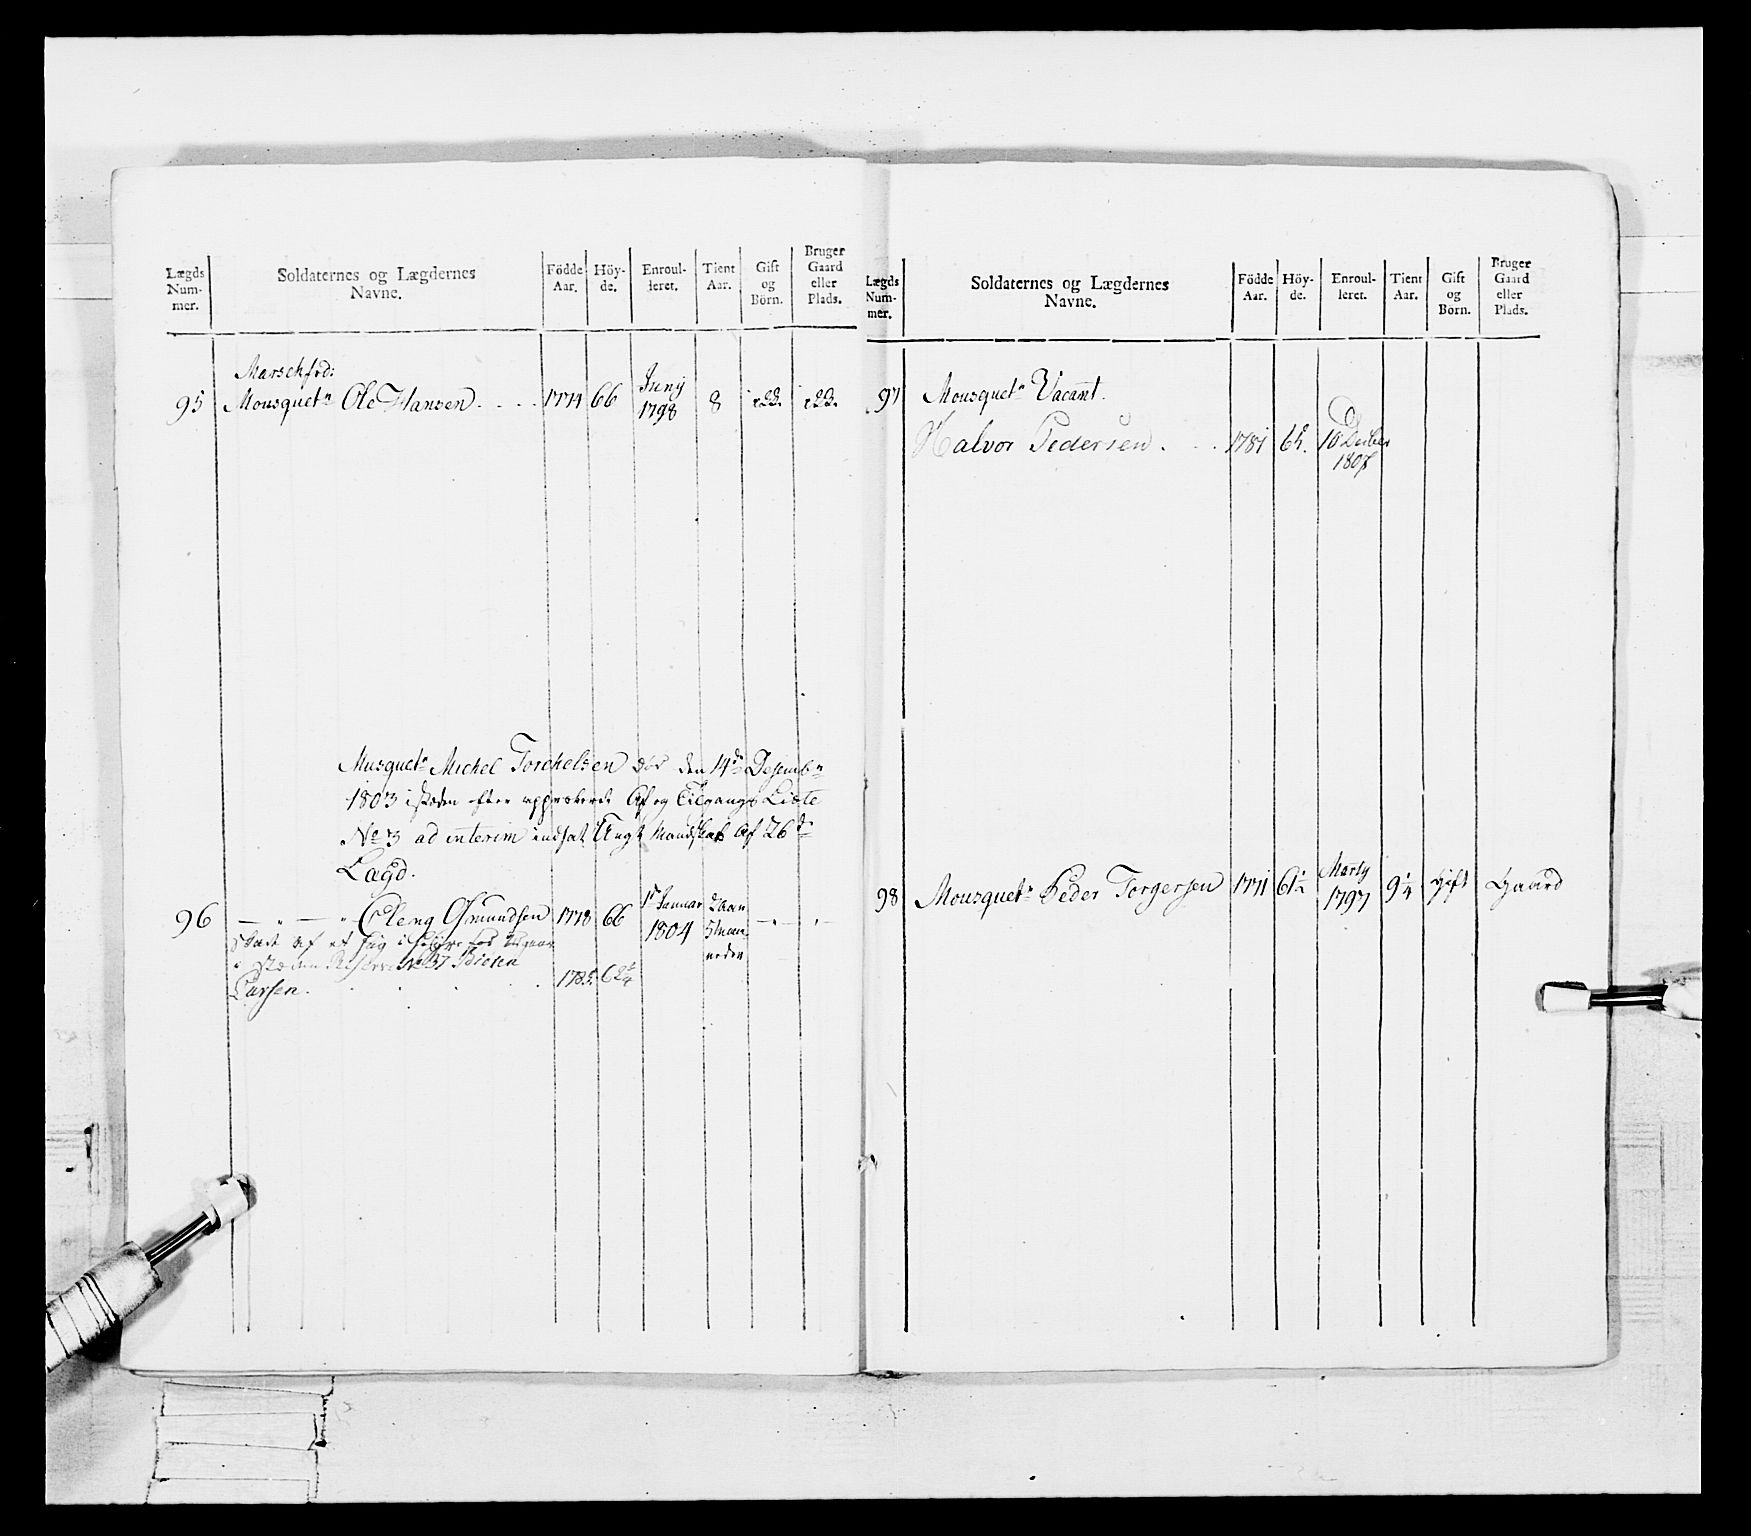 Lægds Num- mer.
Soldaternes og Lægdernes Navne.
Födde Aar.
Höy- de.
Enroul- leret.
Tient Aar.
Gift og Börn.
Bruger Gaard eller Plads.
Marschfrd:
95 Mousquetr Ole Hansen 1774 66 Juny 1798 8
Musquetr Michel Torchelsen död den 14de Desembr
1803 isteden efter approberede Af og Tilgangs Liste
No 3 ad interim indsat Ungt Mandskab Af 26de
Lagd.
96 — " — " Oleng Gmundsen 1778 66 1te Januar 1804 2 Aar 5 Maaneder
Skadt af et
i steden Reserve No 37
Larsen 1785 62 3/4
Lægds Num- mer.
Soldaternes og Lægdernes Navne.
Födde Aar.
Höy- de.
Enroul- leret.
Tient Aar.
Gift og Börn.
Bruger Gaard eller Plads.
97 Mousquetr Vacant.
Halvor Pedersen 1781 10 Decber 1807
98 Mousquetr Peder Torgersen 1771 61 1/2 Marty 1797 9 1/4 Gift Gaard